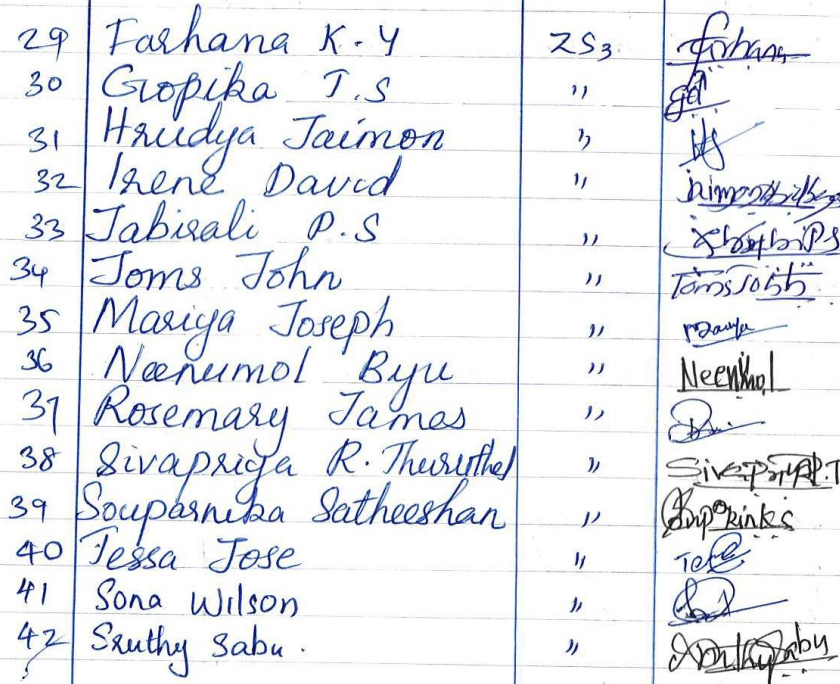 29 Farhana K.Y ZS3 Farhana
30 Gopika T.S "
31 Hrudya Jaimon "
32 Irene David "
33 Jabirali P.S "
34 Joms John "
35 Mariya Joseph "
36 Neenumol Byu " Neenumol
37 Rosemary James "
38 Sivapriya R. Thuruthel "
39 Souparnika Satheeshan "
40 Tessa Jose "
41 Sona Wilson "
42 Sruthy Sabu. " Sruthy Sabu